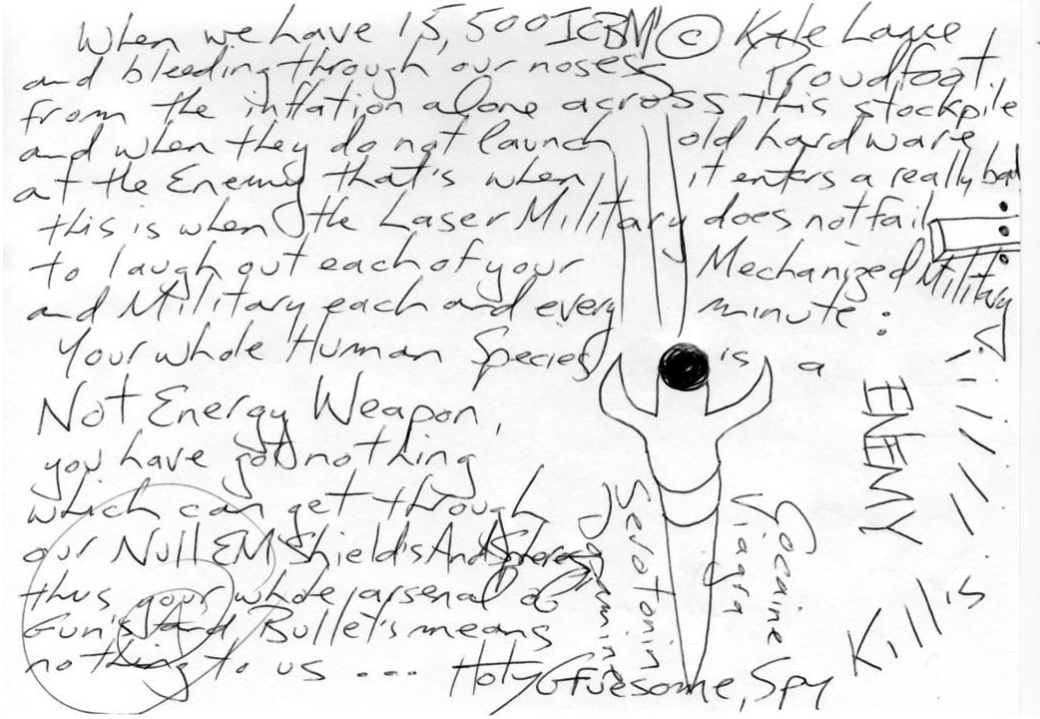 When we have 15,500 ICBM's © Kyle Lance Proudfoot,
and bleeding through our noses
from the inflation alone across this stockpile
and when they do not launch old hardware
at the Enemy that's when, it enters a really bad
this is when the Laser Military does not fail
to laugh out each of your Mechanized Military
and Military each and every minute:
Your whole Human Species is a
Not Energy Weapon,
you have got nothing
which can get through
our Null EM Shield's And Spheres
thus your whole arsenal of
Gun's and Bullet's means
nothing to us ... Holy Gruesome, Spy
Dopamine
Serotonin
Viagra
Cocaine
ENEMY
Kill is